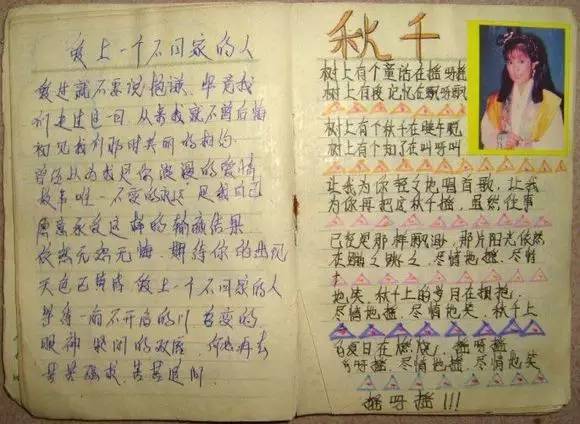 爱上一个不回家的人
爱过就不要说抱歉 毕竟我
们走过这一回 从来我就不曾后悔
初见我们那时共聚的相约
曾经以为我是你浪漫的爱情
故事唯一不变的永远 是我自己
愿意承受这样的输赢结果
依然无怨无悔 期待你的出现
天色已黄昏 爱上一个不回家的人
等待一扇不开启的门 善变的
眼神 紧闭的双唇 何必再去
苦苦强求 苦苦追问
秋千
树上有个童话在摇呀摇
树上有段记忆在飘呀飘
树上有个秋千在晚午晚
树上有个知了在叫呀叫
让我为你轻轻地唱首歌,让我
为你再把这秋千摇,虽然往事
已经是那样飘渺,那片阳光依然
尽情地摇,尽情
地笑,秋千上的岁月在拥抱,
尽情地摇,尽情地笑,秋千上
夏日在燃烧,摇呀摇
尽情地摇,尽情地笑
摇呀摇!!!